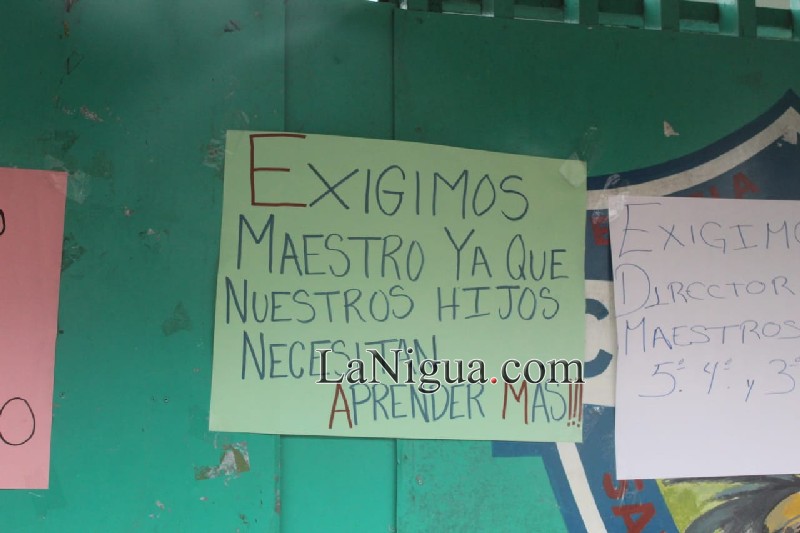 EXIGIMOS
MAESTRO YA QUE
NUESTROS HIJOS
NECESITAN
APRENDER MAS!!!
LaNigua.com
EXIGIMO
DIRECTOR
MAESTROS
5º. 4º. y 3º
O